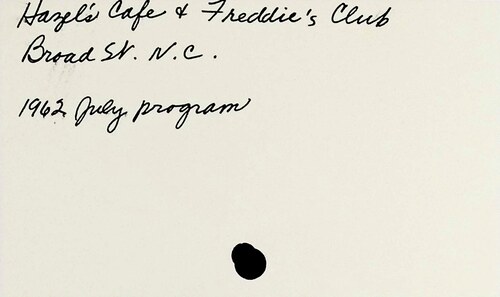 Hazel's Cafe & Freddie's Club
Broad St. N.C.
1962 July program